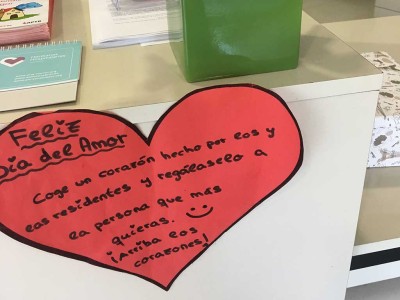 FELIZ
Día del Amor
Coge un corazón hecho por los y
las residentes y regálaselo a
la persona que más
quieras.
¡Arriba los
corazones!